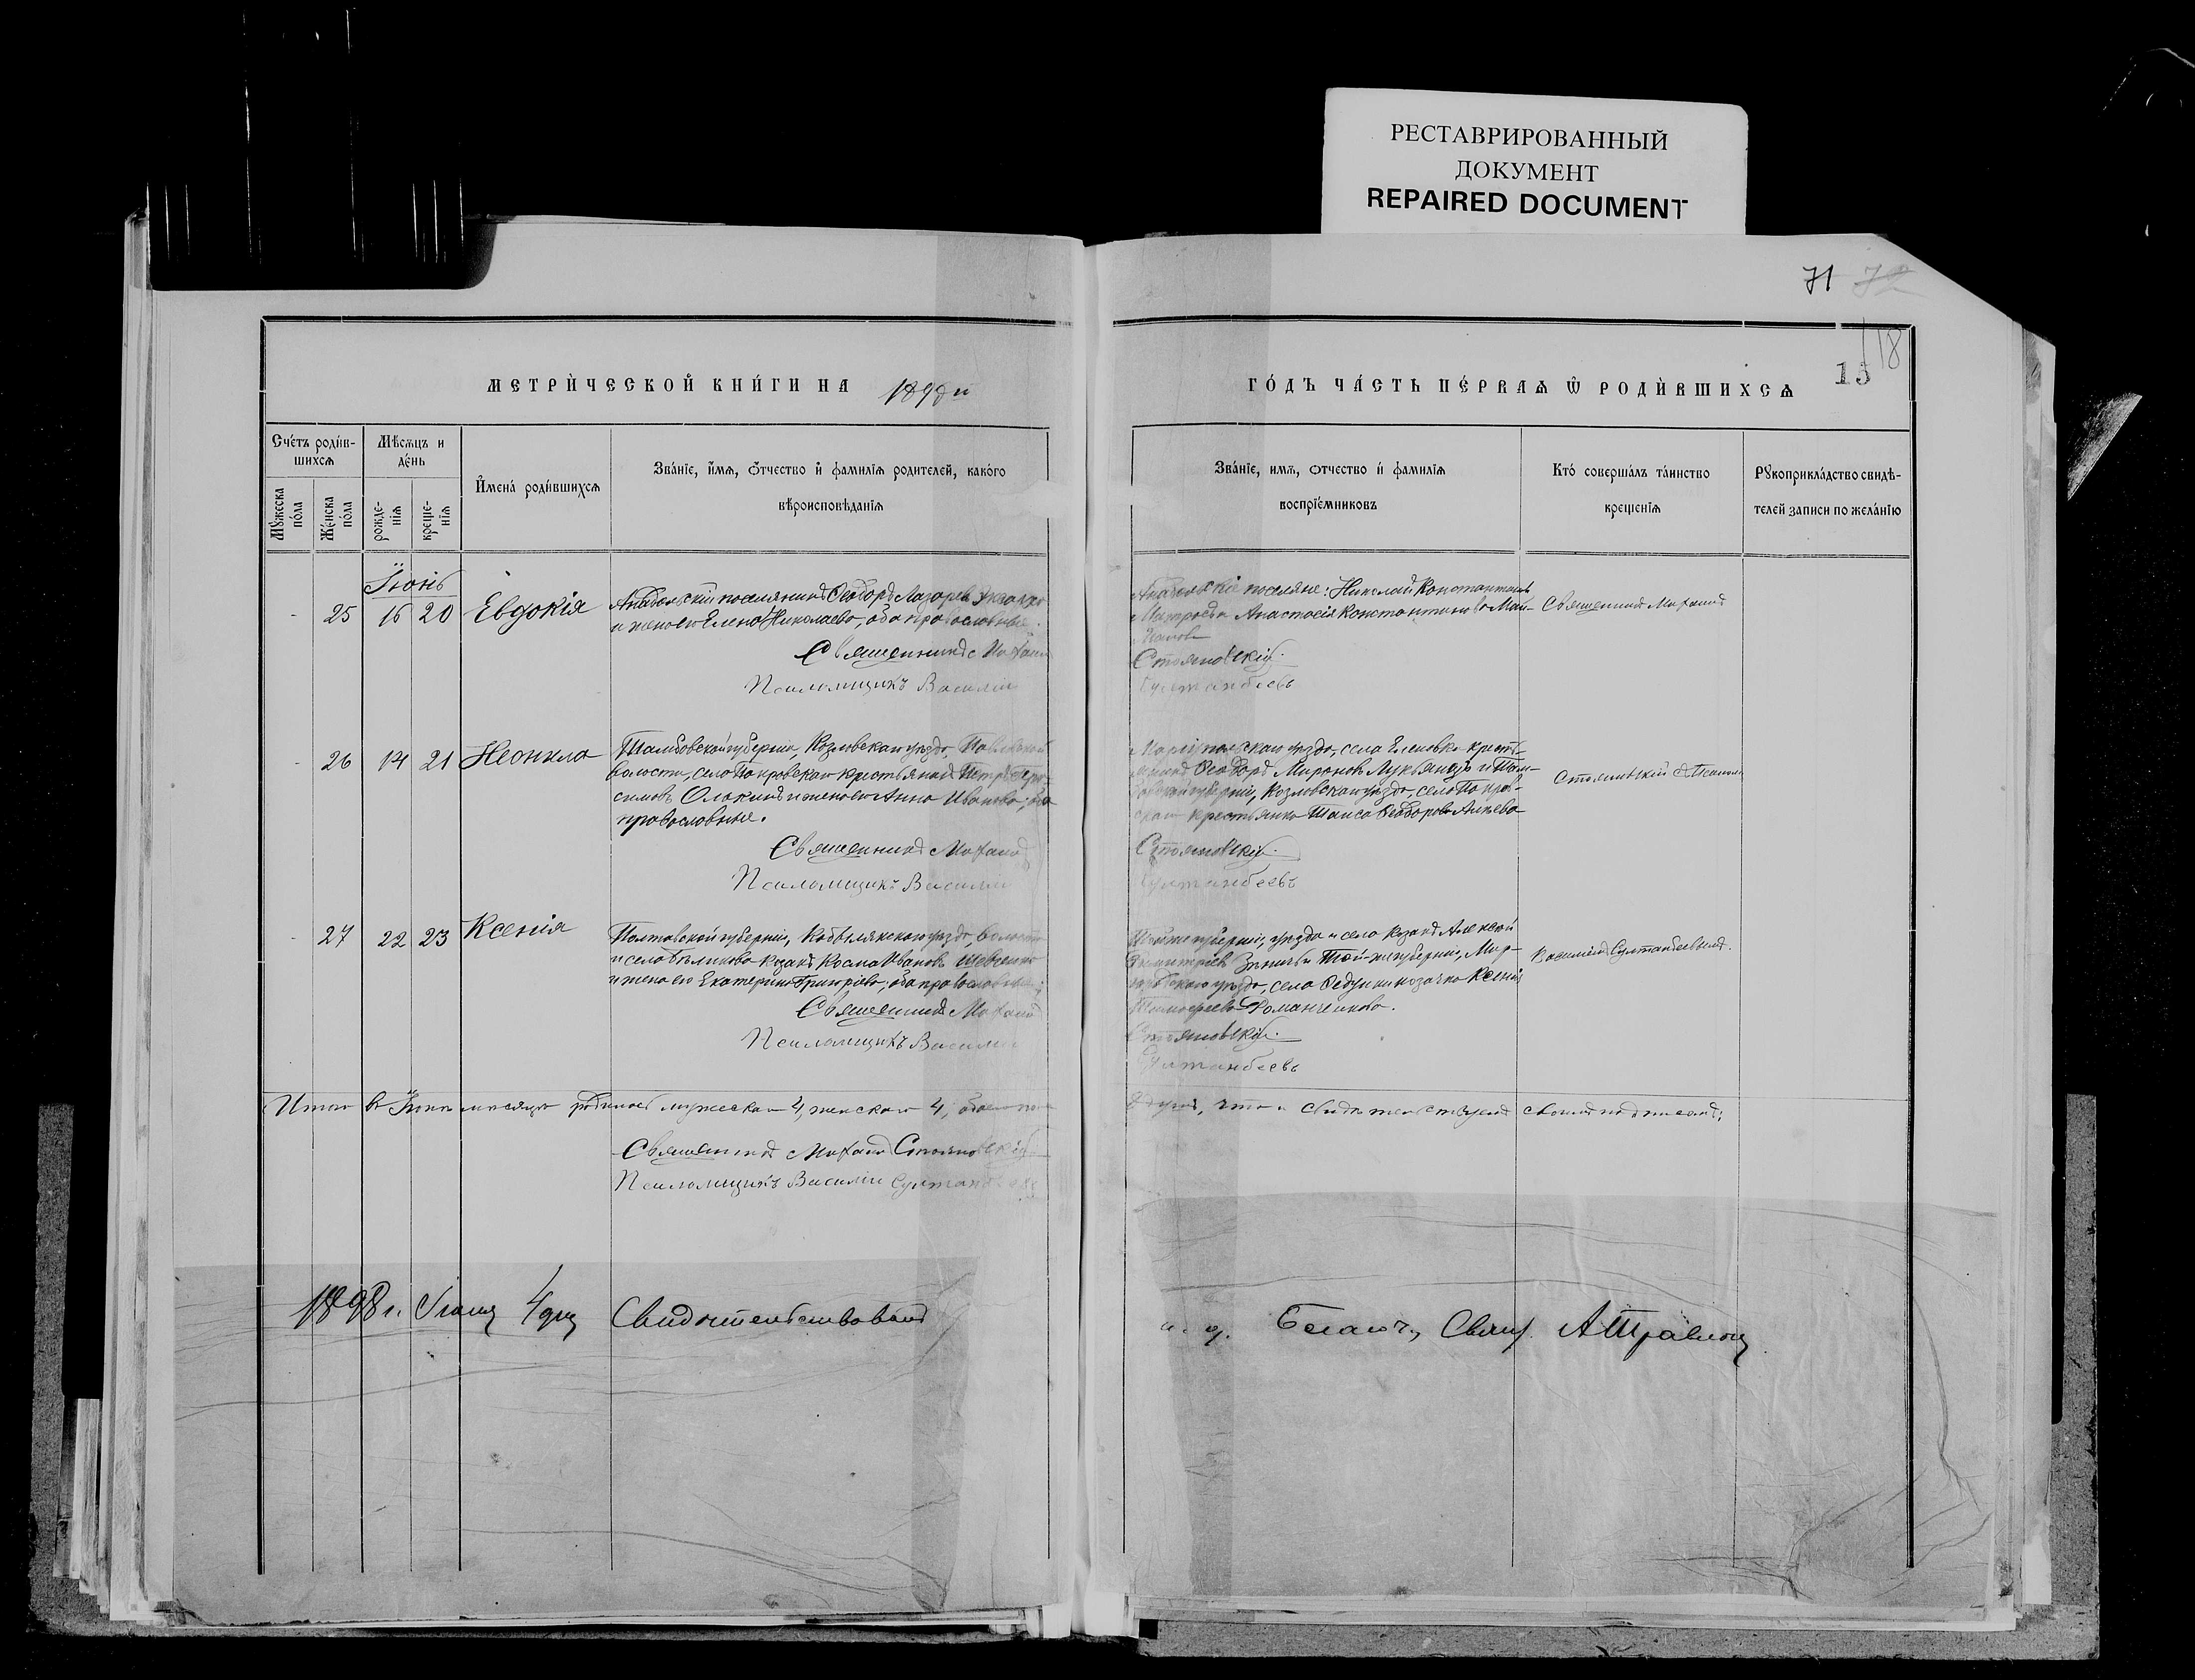 РЕСТАВРИРОВАННЫЙ
ДОКУМЕНТ
REPAIRED DOCUMENT
71 72
118
15
МЕТРИ́ЧЕСКОЙ КНИ́ГИ НА 1898й
ГО́ДЪ ЧА́СТЬ ПЕ́РВАѦ Ѡ РОДИ́ВШИХСѦ
Сче́тъ роди́в-
шихсѧ
Мѣ́сѧцъ и
де́нь
Мꙋ́жеска
по́ла
Же́нска
по́ла
рожде-
нїѧ
креще-
нїѧ
Имена́ роди́вшихсѧ
Зва́нїе, и́мѧ, ѻ́тчество и́ фами́лїѧ родителей, како́го
вѣроисповѣ́данїѧ
Зва́нїе, имѧ, ѻтчество и́ фамилїѧ
воспрїе́мниковъ
Кто́ соверша́лъ та́инство
креще́нїѧ
Рꙋкоприкла́дство свидѣ-
телей записи по жела́нїю
Іюнь
- 25 16 20 Евдокія
поселянинъ Ѳеодоръ Лазаревъ
и жена его Елена Николаева, оба православные.
Священникъ Михаилъ
Псаломщикъ Василій
поселяне: Николай Константиновъ
Анастасія Константинова
Стояновскій.
Султанбеевъ
Священникъ Михаилъ
- 26 14 21 Неонила
Тамбовской губерніи, Козловскаго уѣзда, Павловской
волости, села Покровскаго крестьянинъ Петръ
Олокинъ и жена его Анна Иванова, оба
православные.
Священникъ Михаилъ
Псаломщикъ Василій
Маріупольскаго уѣзда, села Еленовка кресть-
янинъ Ѳеодоръ Мироновъ Лукьянецъ и Там-
бовской губерніи, Козловскаго уѣзда, села Покров-
скаго крестьянка Таиса Ѳеодорова
Стояновскій.
Султанбеевъ
Стояновскій съ Псалом
- 27 22 23 Ксенія
Полтавской губерніи, Кобылякскаго уѣзда, волости
и села Бѣликова козакъ Косма Ивановъ Шевченко
и жена его Екатерина Григоріева, оба православные;
Священникъ Михаилъ
Псаломщикъ Василій
губерніи, уѣзда и села козакъ Алексѣй
Димитріевъ и Той-же губерніи, Мир-
городскаго уѣзда, села Ѳедунки козачка Ксенія
Тимоѳеева Романченкова.
Стояновскій.
Султанбеевъ
Василіемъ Султанбеевымъ.
Итого въ Іюнѣ мѣсяцѣ родилось мужескаго 4, женскаго 4, обоего по-
ла душъ, что и свидѣтельствуемъ своимъ подписомъ:
Священникъ Михаилъ Стояновскій
Псаломщикъ Василій Султанбеевъ
1898 г. 4 дня Свидѣтельствовалъ
и. д. Благоч., Свящ. А Травлон